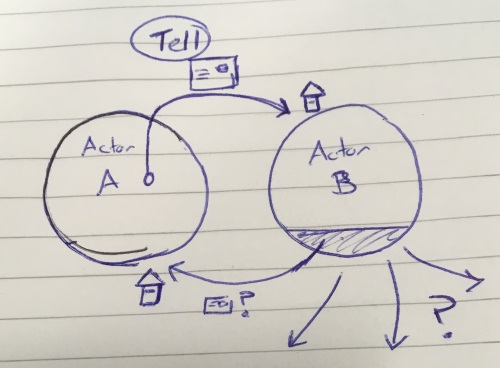 Tell
Actor
A
Actor
B
?
?